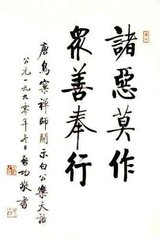 諸惡莫作
眾善奉行
唐鳥窠禪師開示白公樂天語
公元一九九零年冬日啟功敬書